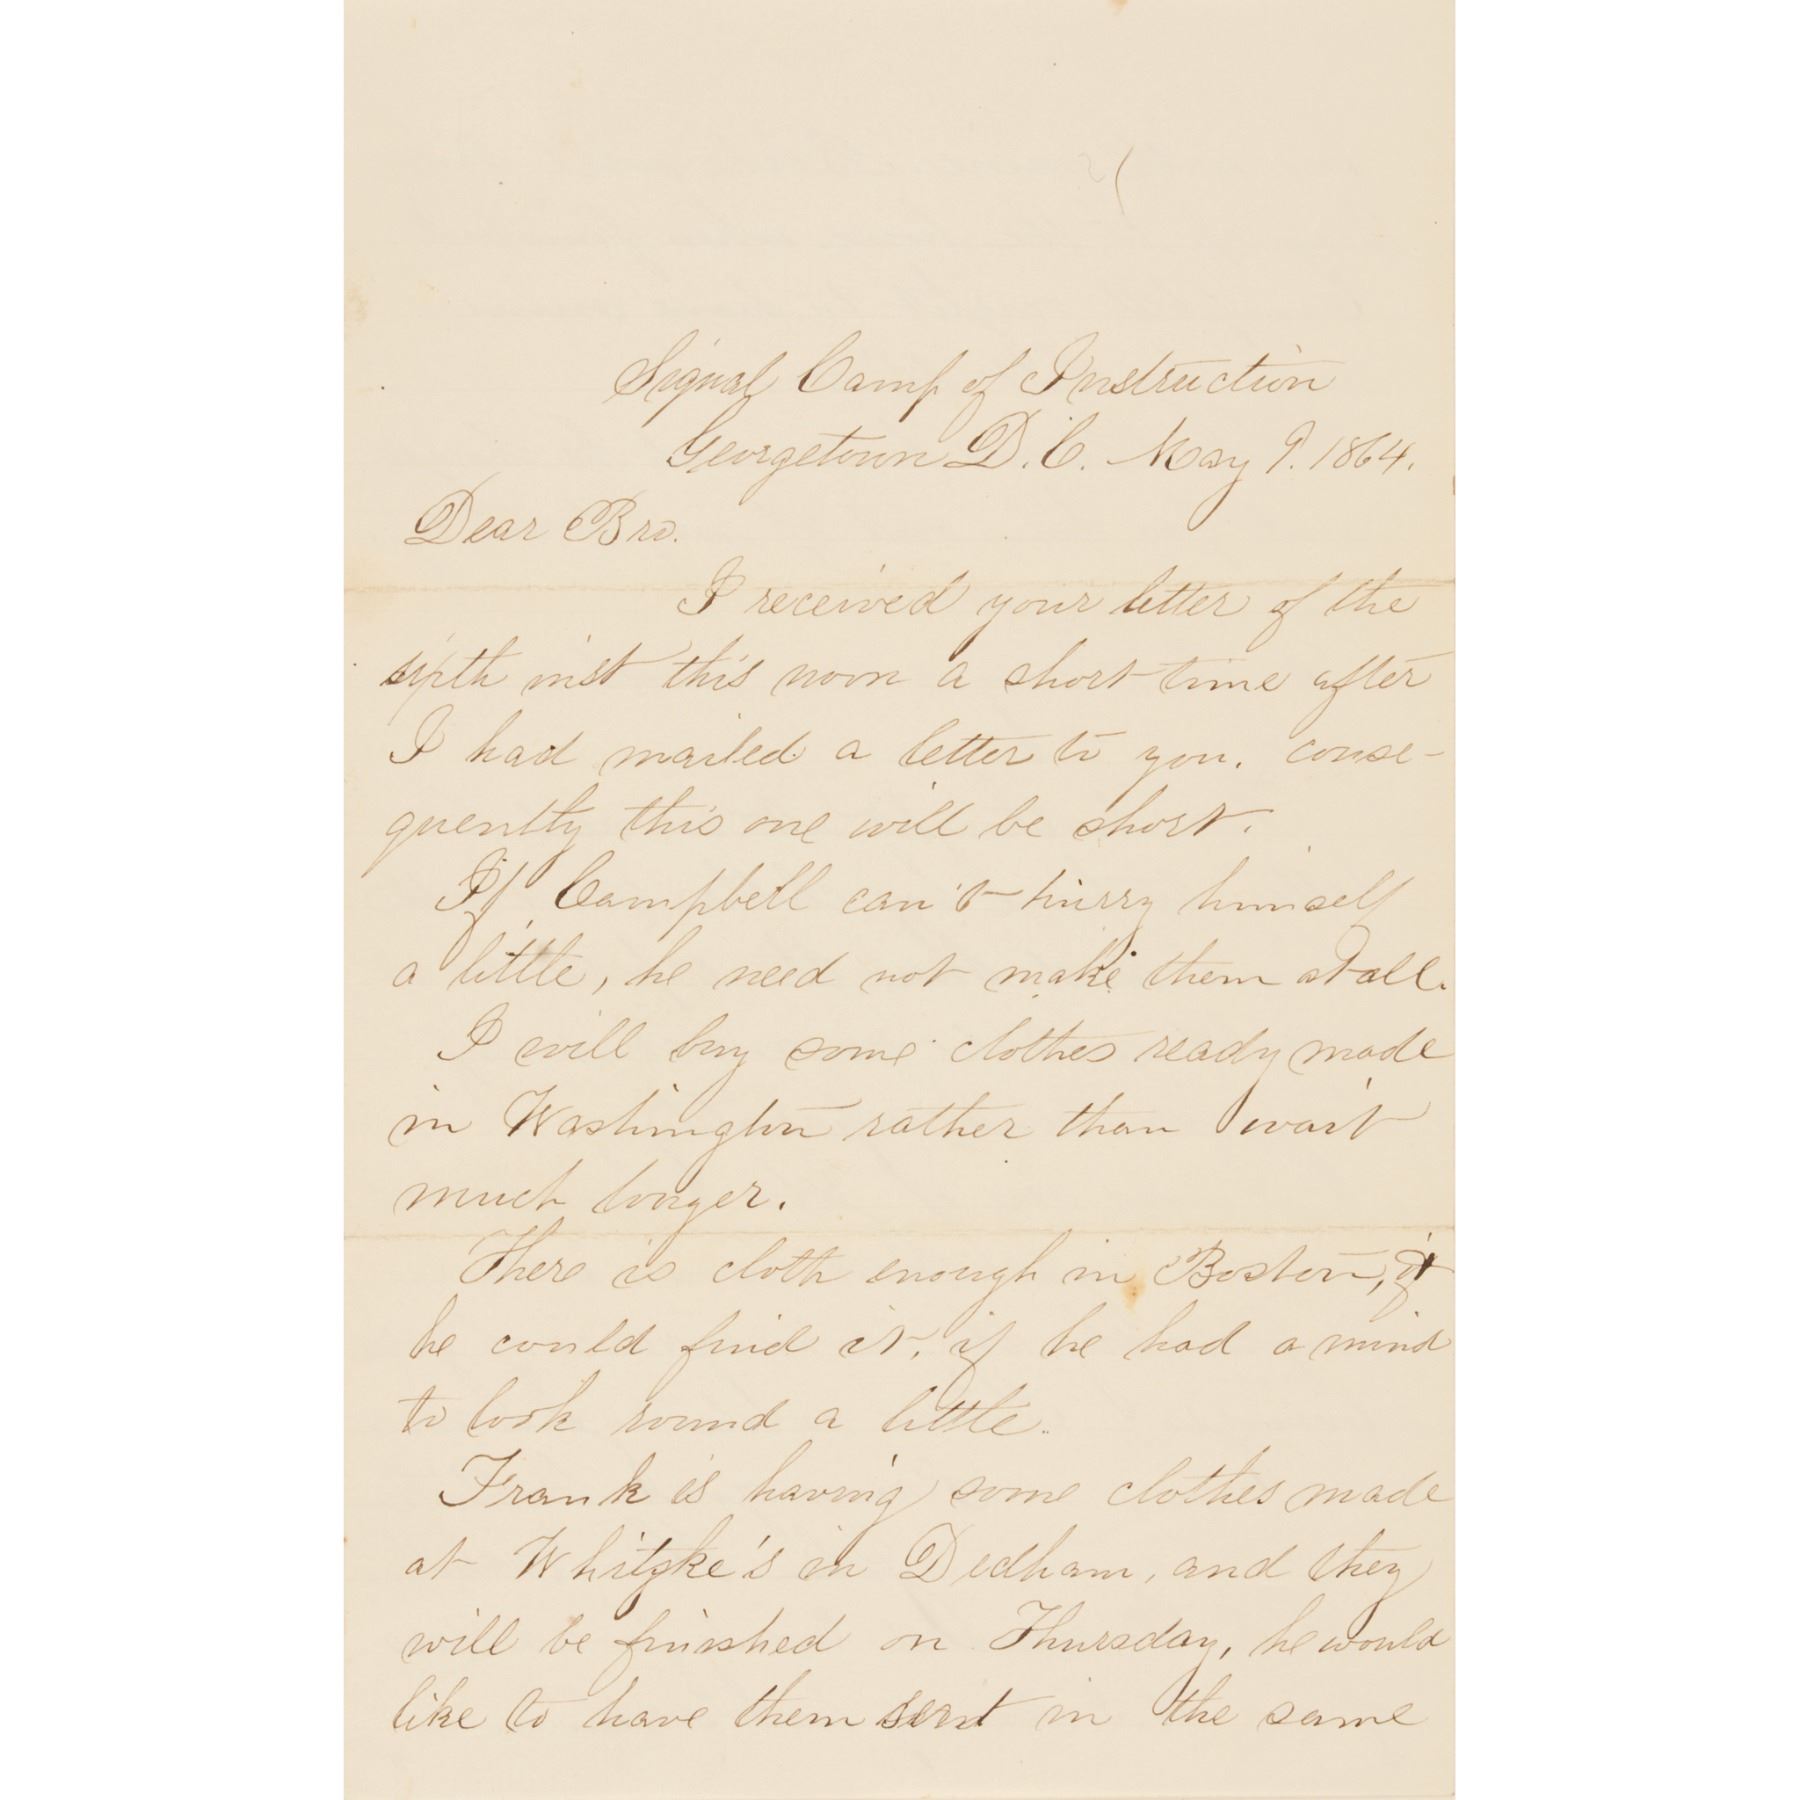 Signal Camp of Instruction
Georgetown D.C. May 9. 1864.
Dear Bro.
I received your letter of the
sixth inst this noon a short time after
I had mailed a letter to you. conse-
quently this one will be short.
If Campbell can't hurry himself
a little, he need not make them at all.
I will buy some clothes ready made
in Washington rather than wait
much longer.
There is cloth enough in Boston, if
he could find it, if he had a mind
to look round a little.
Frank is having some clothes made
at in Dedham, and they
will be finished on Thursday, he would
like to have them sent in the same